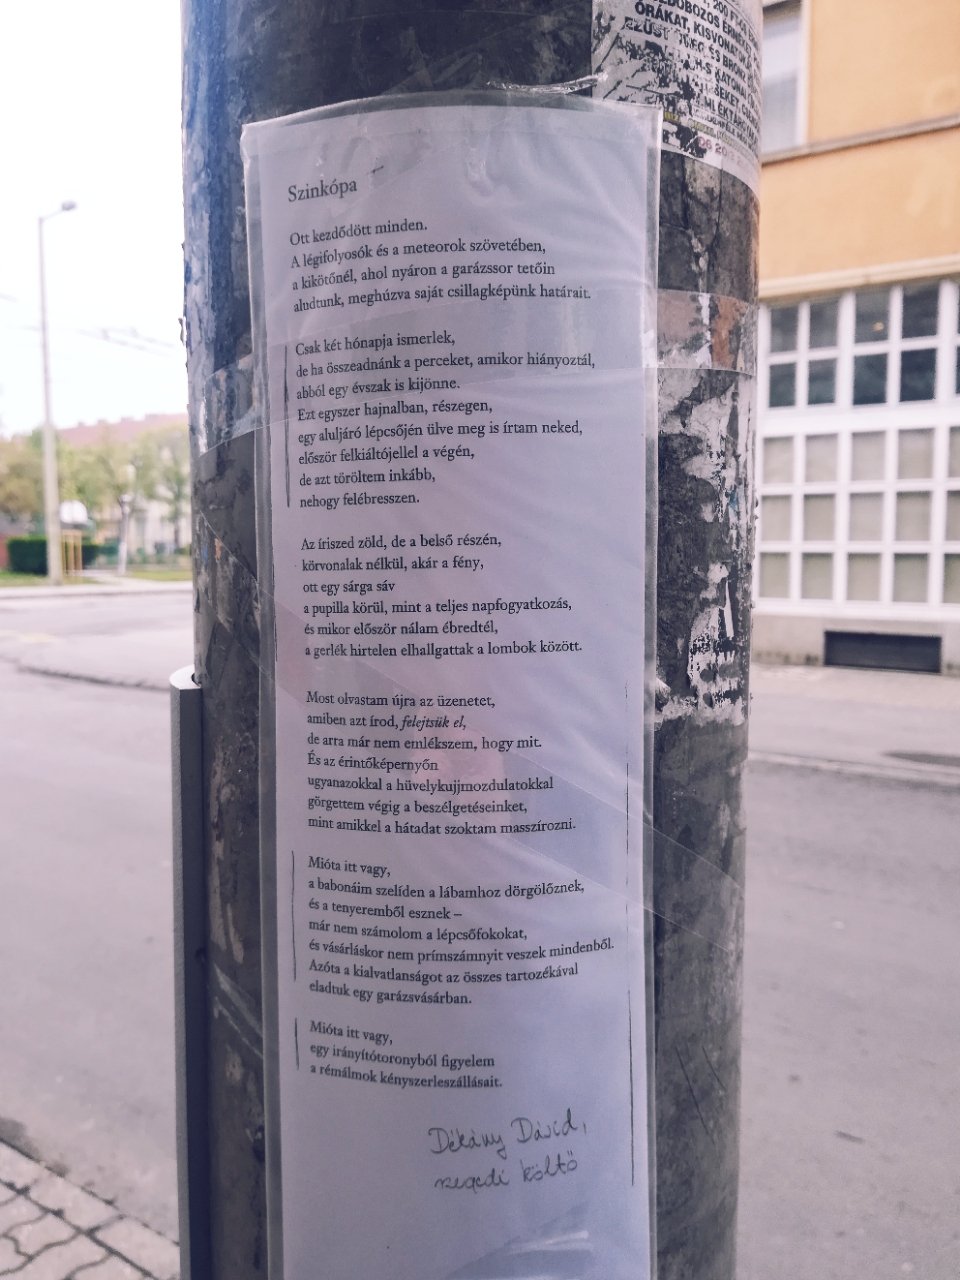 200 Ft-
ÓRÁKAT, KISVONATOK
EZÜST
ÉS BRON
KATONAI
Szinkópa
Ott kezdődött minden.
A légifolyosók és a meteorok szövetében,
a kikötőnél, ahol nyáron a garázssor tetőin
aludtunk, meghúzva saját csillagképünk határait.
Csak két hónapja ismerlek,
de ha összeadnánk a perceket, amikor hiányoztál,
abból egy évszak is kijönne.
Ezt egyszer hajnalban, részegen,
egy aluljáró lépcsőjén ülve meg is írtam neked,
először felkiáltójellel a végén,
de azt töröltem inkább,
nehogy felébresszen.
Az íriszed zöld, de a belső részén,
körvonalak nélkül, akár a fény,
ott egy sárga sáv
a pupilla körül, mint a teljes napfogyatkozás,
és mikor először nálam ébredtél,
a gerlék hirtelen elhallgattak a lombok között.
Most olvastam újra az üzenetet,
amiben azt írod, felejtsük el,
de arra már nem emlékszem, hogy mit.
És az érintőképernyőn
ugyanazokkal a hüvelykujjmozdulatokkal
görgettem végig a beszélgetéseinket,
mint amikkel a hátadat szoktam masszírozni.
Mióta itt vagy,
a babonáim szelíden a lábamhoz dörgölőznek,
és a tenyeremből esznek –
már nem számolom a lépcsőfokokat,
és vásárláskor nem prímszámnyit veszek mindenből.
Azóta a kialvatlanságot az összes tartozékával
eladtuk egy garázsvásárban.
Mióta itt vagy,
egy irányítótoronyból figyelem
a rémálmok kényszerleszállásait.
Dékány Dávid,
szegedi költő